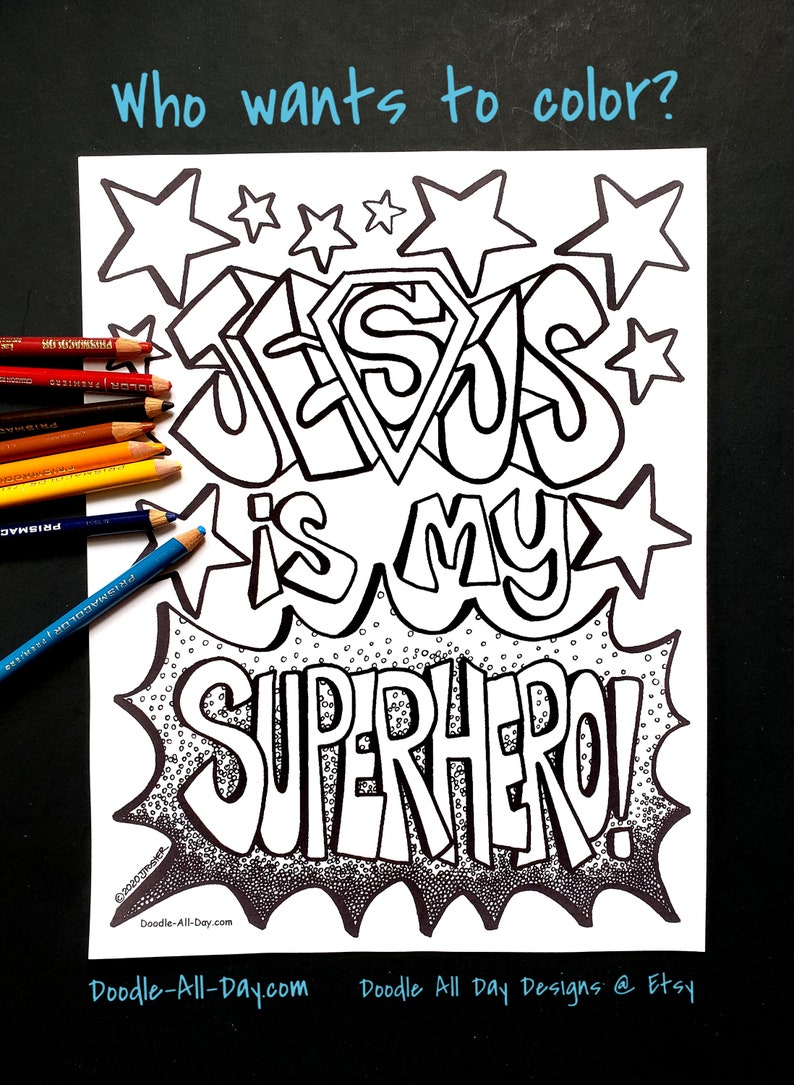 Who wants to color?
JESUS
is my
SUPERHERO!
PRISMACOLOR
PREMIER
PRISMA
PRISMACOLOR
PRISMAC
PRISMACOLOR PREMIER
©2020 JMOSHER
Doodle-All-Day.com
Doodle-All-Day.com Doodle All Day Designs @ Etsy